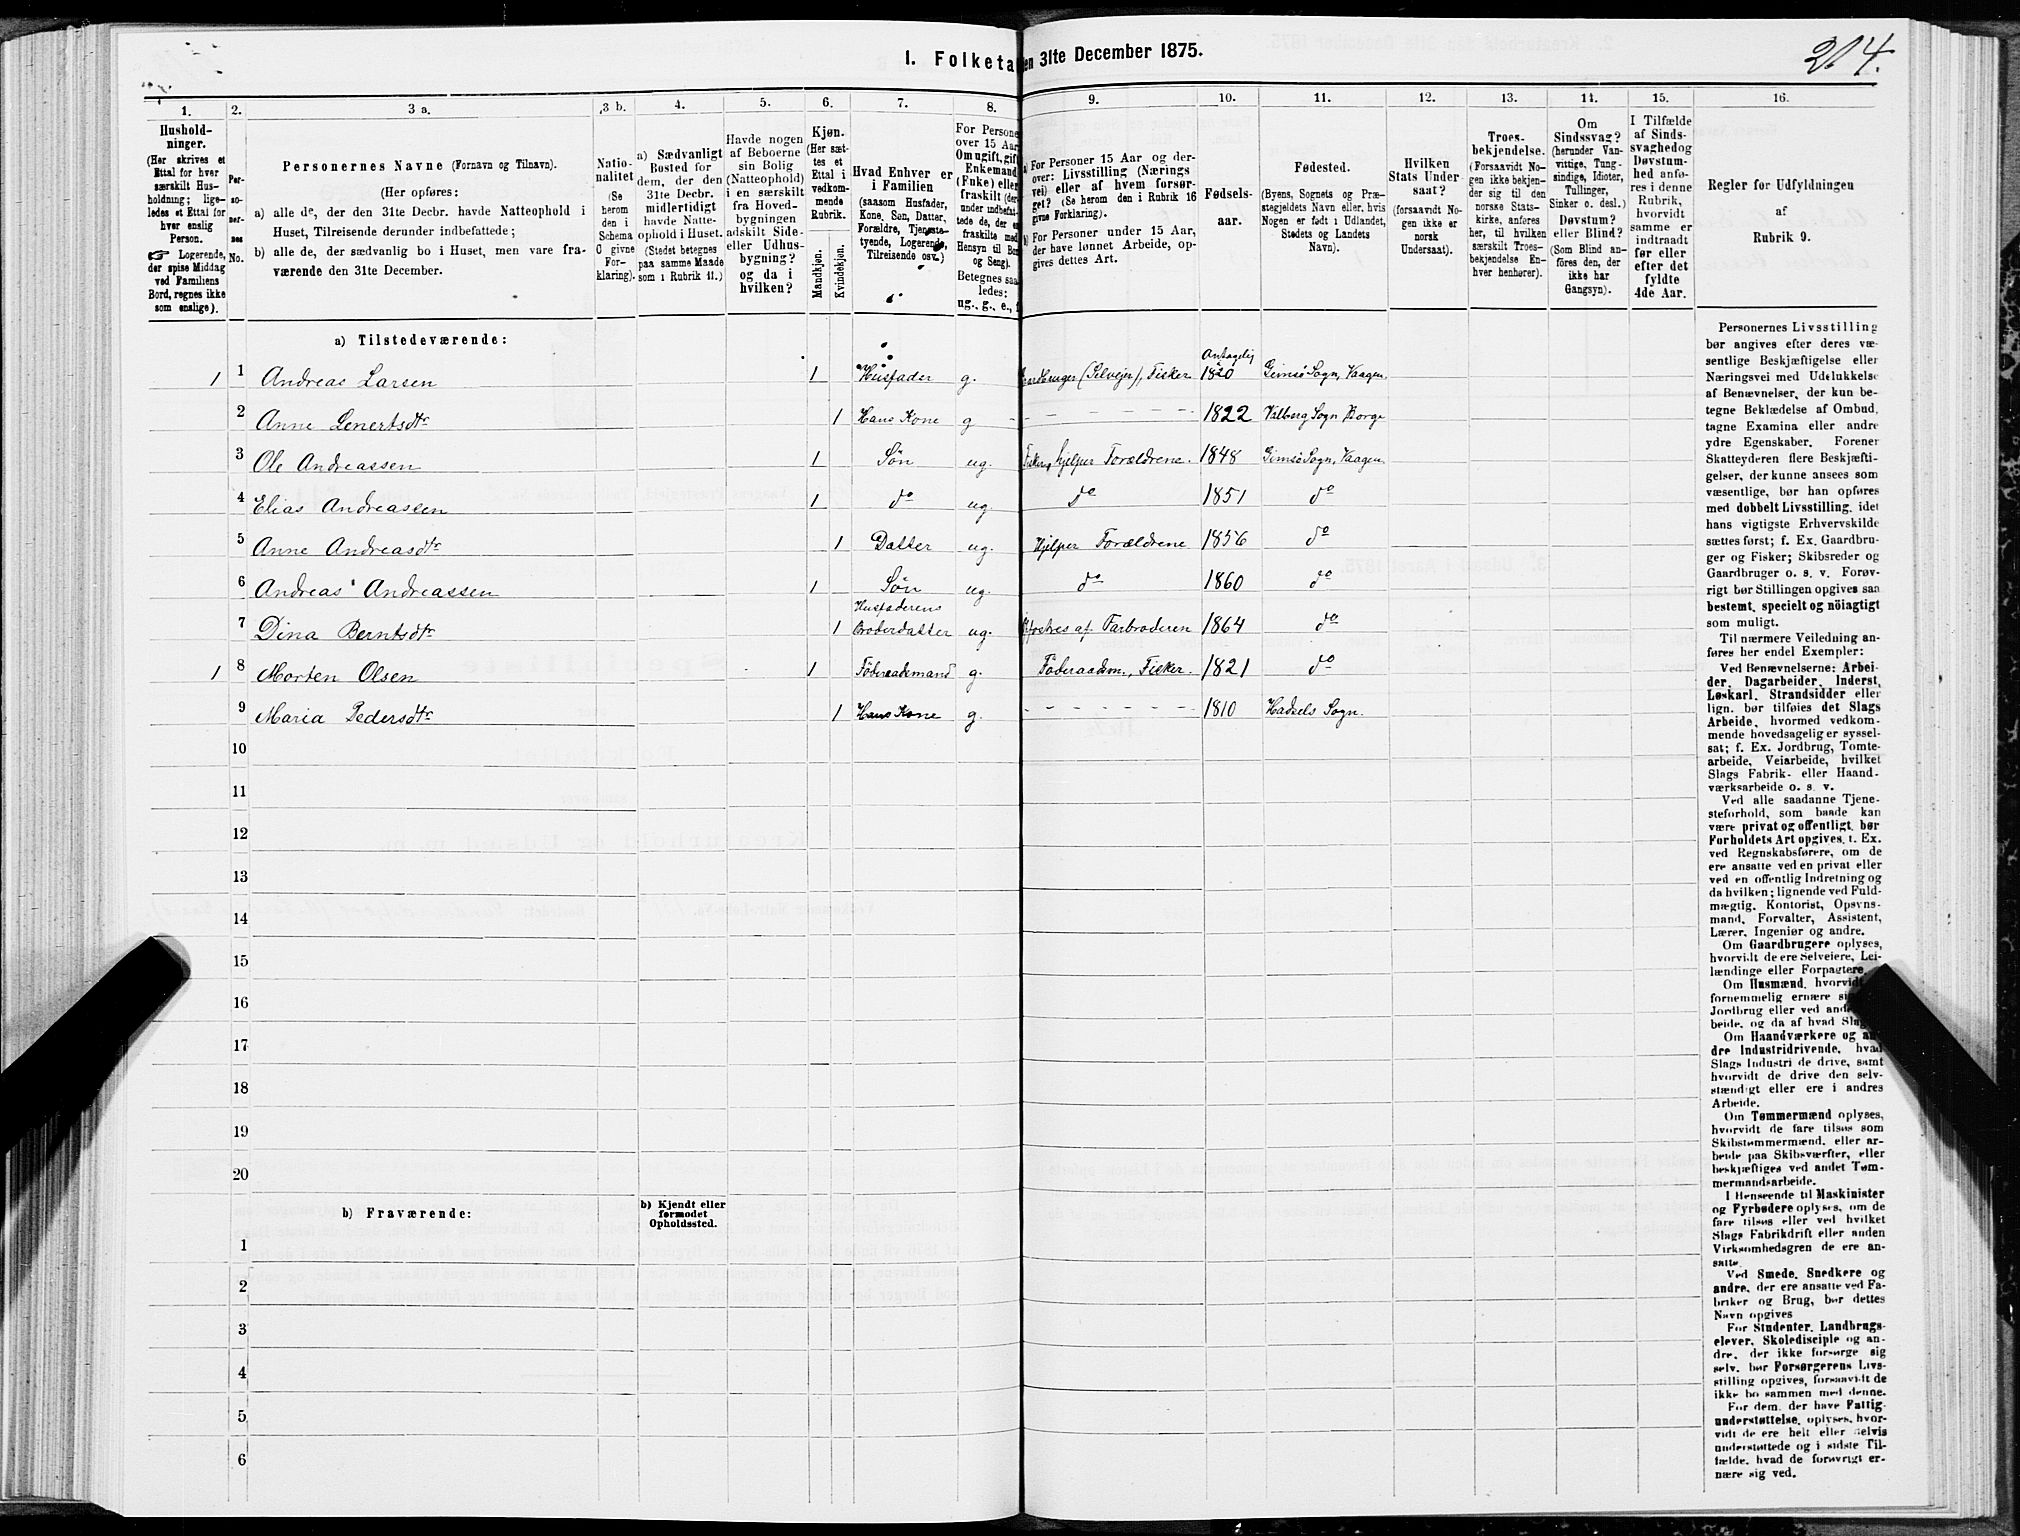 I. Folketa en 31te December 1875.
214.
1. 2. 3 a. 3 b. 4. 5. 6. 7. 8. 9. 10. 11. 12. 13. 14. 15. 16.
Hushold-
ninger.
(Her skrives et
Ettal for hver
særskilt Hus-
holdning; lige-
ledes et Ettal for
hver enslig
Person.
☞ Logerende,
der spise Middag
ved Familiens
Bord, regnes ikke
som enslige).
Per-
so-
ner-
nes
No.
Personernes Navne (Fornavn og Tilnavn).
(Her opføres:
a) alle de, der den 31te Decbr. havde Natteophold i
Huset, Tilreisende derunder indbefattede;
b) alle de, der sædvanlig bo i Huset, men vare fra-
værende den 31te December.
Natio-
nalitet
(Se
herom
den i
Schema
C givne
For-
klaring).
a) Sædvanligt
Bosted for
dem, der den
31te Decbr.
midlertidigt
havde Natte-
ophold i Huset.
(Stedet betegnes
paa samme Maade
som i Rubrik 11.)
Havde nogen
af Beboerne
sin Bolig
(Natteophold)
i en særskilt
fra Hoved-
bygningen
adskilt Side-
eller Udhus-
bygning?
og da i
hvilken?
Kjøn.
(Her sæt-
tes et
Ettal i
vedkom-
mende
Rubrik.
Mandkjøn.
Kvindekjøn.
Hvad Enhver er
i Familien
(saasom Husfader,
Kone, Søn, Datter,
Forældre, Tjeneste-
tyende, Logerende,
Tilreisende osv.)
For Persone
over 15 Aar
Om ugift, gift
Enkemand
(Enke) eller
fraskilt (der
under indbefat-
tede de, der er
fraskilte med
Hensyn til Bor
og Seng).
Betegnes saa
ledes:
ug., g., e., f
a) For Personer 15 Aar og der-
over: Livsstilling (Nærings
vei) eller af hvem forsør-
get? (Se herom den i Rubrik 16
givne Forklaring).
b) For Personer under 15 Aar,
der have lønnet Arbeide, op-
gives dettes Art.
Fødsels-
aar.
Fødested.
(Byens, Sognets og Præ-
stegjeldets Navn eller, hvis
Nogen er født i Udlandet,
Stedets og Landets
Navn).
Hvilken
Stats Under-
saat?
(forsaavidt No-
gen ikke er
norsk
Undersaat).
Troes-
bekjendelse.
(Forsaavidt No-
gen ikke bekjen-
der sig til den
norske Stats-
kirke, anføres
her, til hvilken
særskilt Troes-
bekjendelse En-
hver henhører).
Om
Sindssvag?
(herunder Van-
vittige, Tung-
sindige, Idioter,
Tullinger,
Sinker o. desl.)
Døvstum?
eller Blind?
(Som Blind an-
føres den, der
ikke har
Gangsyn).
I Tilfælde
af Sinds-
svaghed og
Døvstum-
hed anfø-
res i denne
Rubrik,
hvorvidt
samme er
indtraadt
før eller
efter det
fyldte
4de Aar.
Regler for Udfyldningen
af
Rubrik 9.
a) Tilstedeværende:
1 1 Andreas Larsen 1 Husfader g. Gaardbruger (Selveier), Fisker Antagelig 1820 Gimsö Sogn, Vaagen
2 Anne Lenertsdtr 1 Hans Kone g - - - - - - 1822 Valberg Sogn Borge
3 Ole Andreassen 1 Søn ug. Fisker, hjelper Forældrene. 1848 Gimsö Sogn, Vaagen
4 Elias Andreassen 1 do ug. do 1851 do
5 Anne Andreasdtr 1 Datter ug. Hjelper Forældrene 1856 do
6 Andreas Andreassen 1 Søn ug. do 1860 do
7 Dina Berntsdtr 1 Husfaderens Broderdatter ug. Opfostres af Farbroderen 1864 do
1 8 Morten Olsen 1 Föderaadsmand g. Föderaadsm., Fisker. 1821 do
9 Maria Pedersdtr 1 Hans Kone g. - - - - - - 1810 Hadsels Sogn.
10
11
12
13
14
15
16
17
18
19
20
b) Fraværende:
b) Kjendt eller
formodet
Opholdssted.
1
2
3
4
5
6
Personernes Livsstilling
bør angives efter deres væ-
sentlige Beskjæftigelse eller
Næringsvei med Udelukkelse
af Benævnelser, der kun be-
tegne Beklædelse af Ombud,
tagne Examina eller andre
ydre Egenskaber. Forener
Skatteyderen flere Beskjæfti-
gelser, der kunne ansees som
væsentlige, bør han opføres
med dobbelt Livsstilling, idet
hans vigtigste Erhvervskilde
sættes først; f. Ex. Gaardbru-
ger og Fisker; Skibsreder og
Gaardbruger o. s. v. Forøv-
rigt bør Stillingen opgives saa
bestemt, specielt og nöiagtigt
som muligt.
Til nærmere Veiledning an-
føres her endel Exempler:
Ved Benævnelserne: Arbei-
der, Dagarbeider, Inderst,
Løskarl, Strandsidder eller
lign. bør tilføies det Slags
Arbeide, hvormed vedkom-
mende hovedsagelig er syssel-
sat; f. Ex. Jordbrug, Tomte-
arbeide, Veiarbeide, hvilket
Slags Fabrik- eller Haand-
værksarbeide o. s. v.
Ved alle saadanne Tjene-
steforhold, som baade kan
være privat og offentligt, bør
Forholdets Art opgives, t. Ex.
ved Regnskabsførere, om de
ere ansatte ved en privat eller
ved en offentlig Indretning og
da hvilken; lignende ved Fuld-
mægtig, Kontorist, Opsyns-
mand, Forvalter, Assistent,
Lærer, Ingeniør og andre.
Om Gaardbrugere oplyses,
hvorvidt de ere Selveiere, Lei-
lændinge eller Forpagtere.
Om Husmænd, hvorvidt
fornemmelig ernære si
Jordbrug eller ved and
beide, og da af hvad Slag
Om Haandværkere og an
dre Industridrivende, hvad
Slags Industri de drive, samt
hvorvidt de drive den selv-
stændigt eller ere i andres
Arbeide.
Om Tømmermænd oplyses,
hvorvidt de fare tilsøs som
Skibstømmermænd, eller ar-
beide paa Skibsværfter, eller
beskjæftiges ved andet Tøm-
mermandsarbeide.
I Henseende til Maskinister
og Fyrbødere oplyses, om de
fare tilsøs eller ved hvilket
Slags Fabrikdrift eller anden
Virksomhedsgren de ere an-
satte.
Ved Smede, Snedkere og
andre, der ere ansatte ved Fa-
briker og Brug, bør dettes
Navn opgives
For Studenter, Landbrugs-
elever, Skoledisciple og an-
dre, der ikke forsørge sig
selv, bør Forsørgerens Livs-
stilling opgives, forsaavidt de
ikke bo sammen med denne.
For dem, der have Fattig-
understøttelse, oplyses, hvor-
vidt de ere helt eller delvis
understøttede og i sidste Til-
fælde, hvad de forøvrigt er-
nære sig ved.